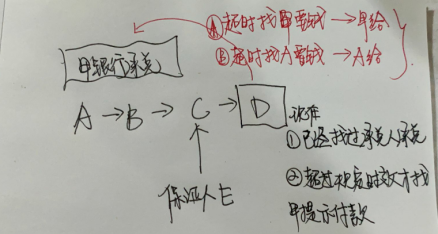 ①超时找甲要钱→甲给
②超时找A要钱→A给
甲银行承兑
A→B→C→D
保证人E
条件
①已经找过承兑人承兑
②超过规定时效才找
甲提示付款